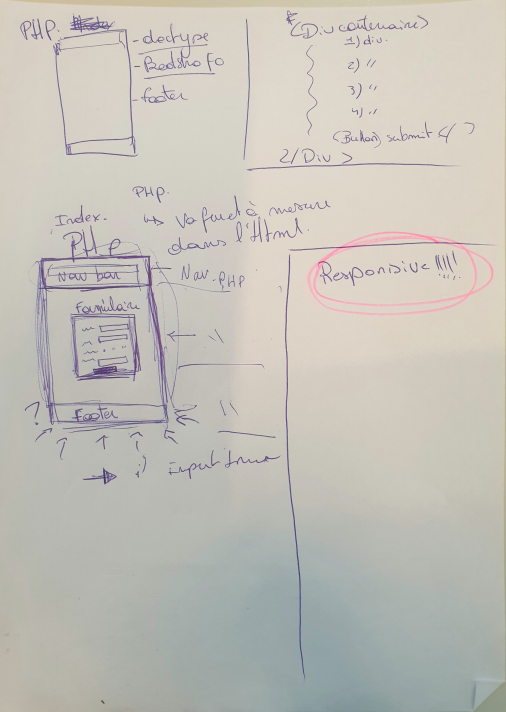 PHP:
- doctype
- footer
(Div contenaire)
1) div.
2) "
3) "
4) "
(Button) submit
2/Div >
PHP.
Index.
PHP
↳ Va fur et à mesure
dans l'Html.
Nav bar
Nav.PHP
Formulaire
"
Footer
"
input
Responsive !!!!!